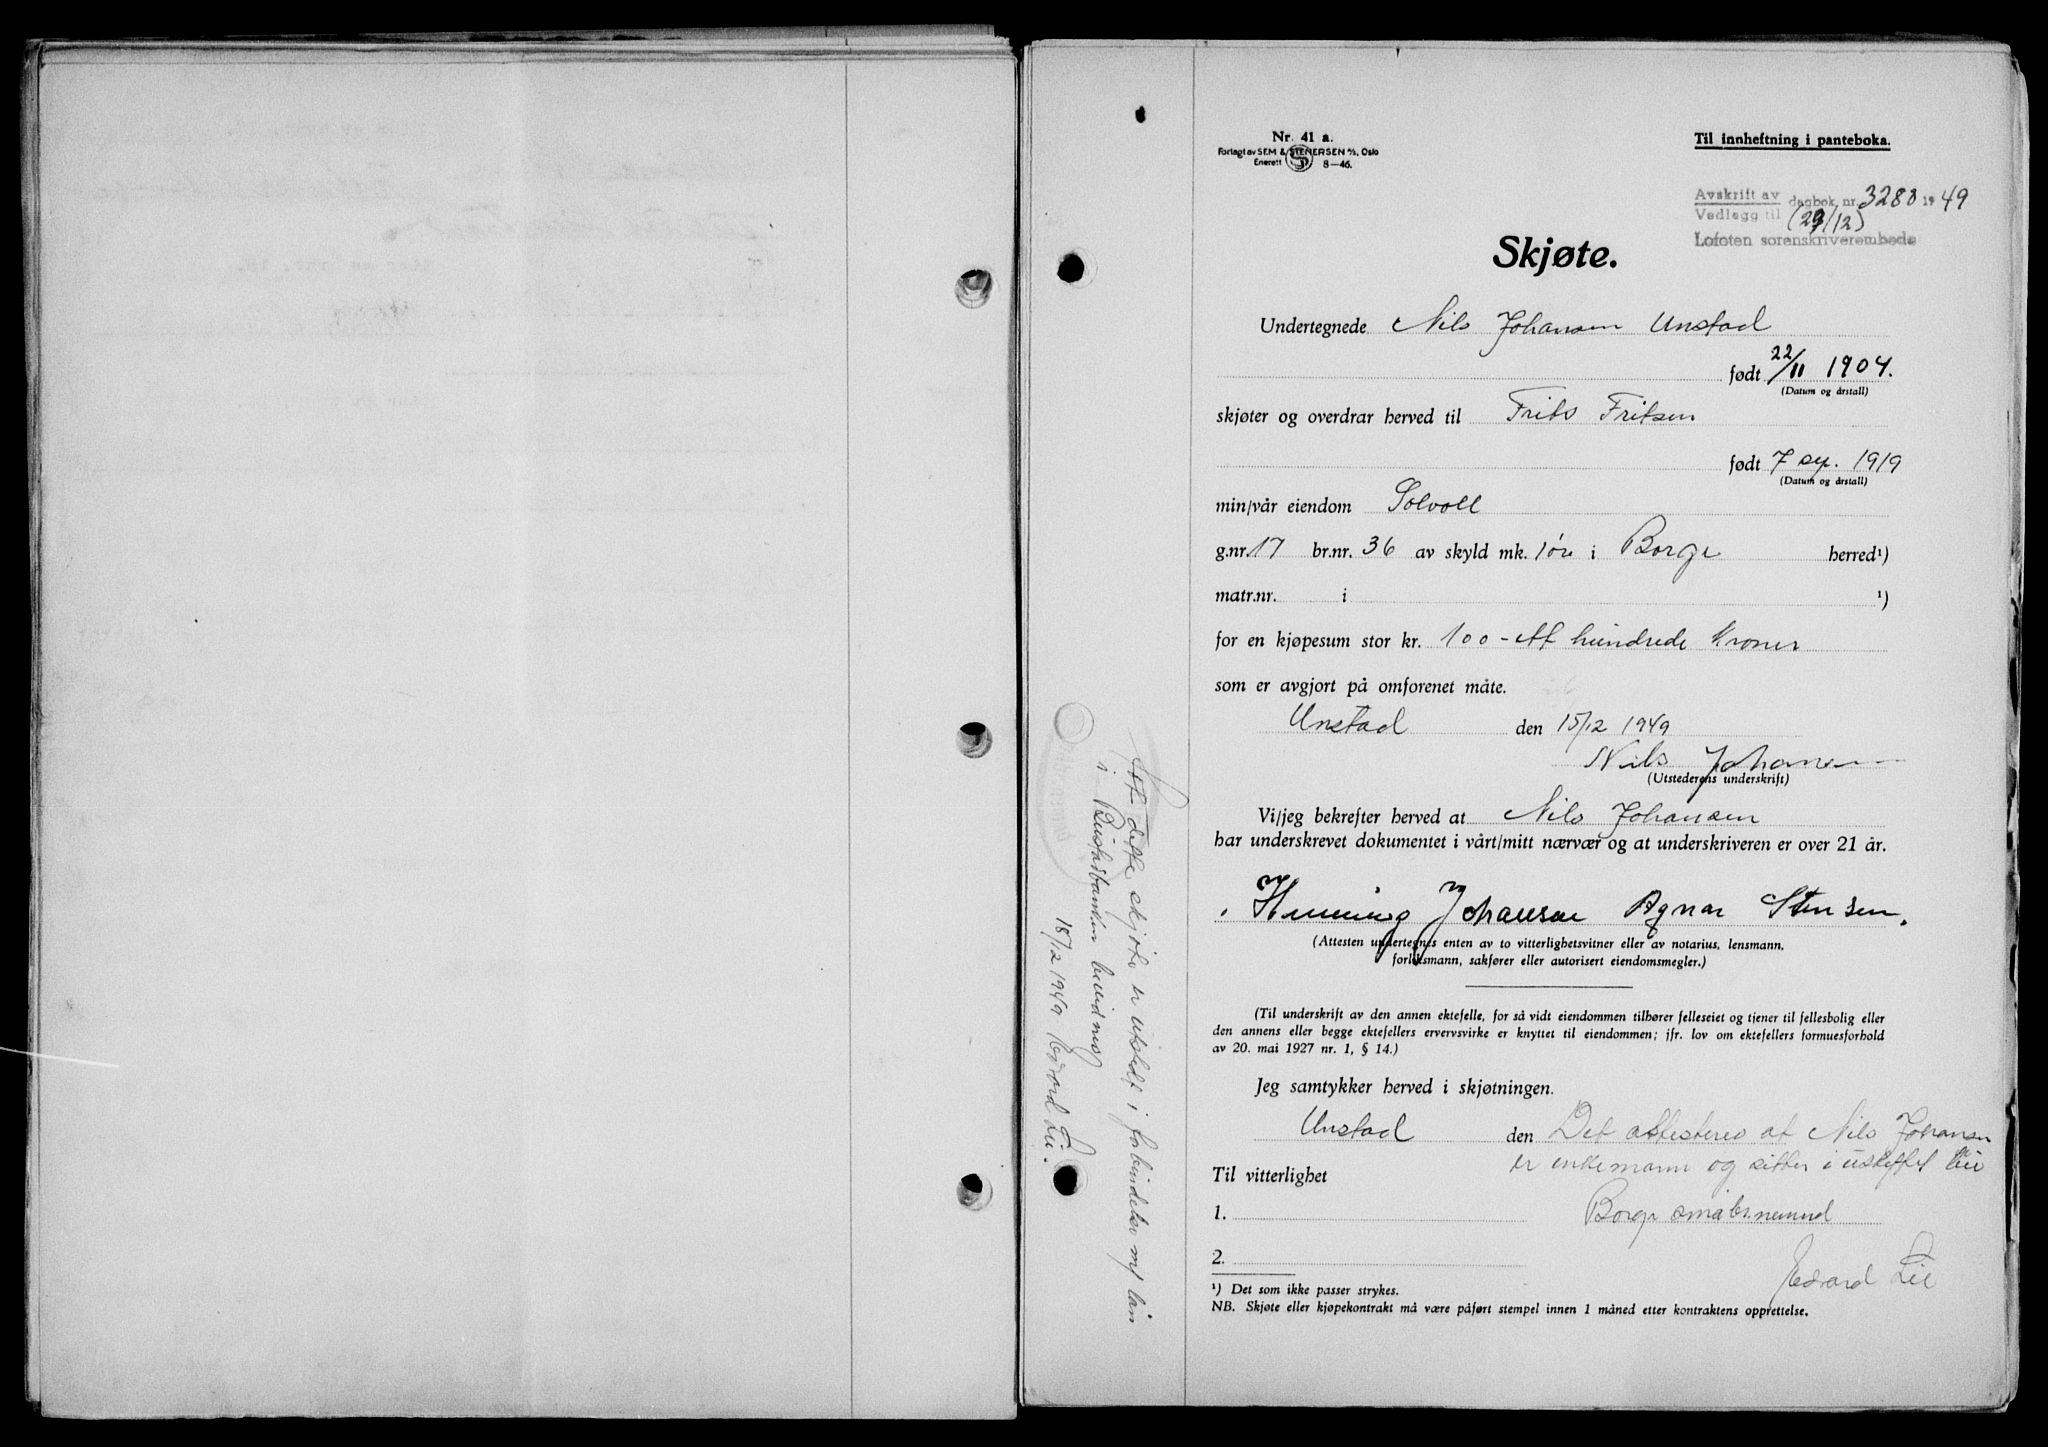 Nr. 41 a.
Forlagt av SEM & STENERSEN A/S, Oslo
Enerett S 8—46.
Til innheftning i panteboka.
Avskrift av
Vedlegg til dagbok nr. 3280 1949
(29/12)
Lofoten sorenskriverembede
Skjøte.
Undertegnede Nils Johansen Unstad
født 22/11 1904.
(Datum og årstall)
skjøter og overdrar herved til Frits Fritsen
født 7 sep. 1919
(Datum og årstall)
min/vår eiendom Solvoll
g.nr. 17 br.nr. 36 av skyld mk. 1 øre i Borge herred¹)
matr.nr. i ¹)
for en kjøpesum stor kr. 100 - ett hundrede kroner
som er avgjort på omforenet måte.
Unstad den 15/12 1949
Nils Johansen
(Utstederens underskrift)
Vi/jeg bekrefter herved at Nils Johansen
har underskrevet dokumentet i vårt/mitt nærvær og at underskriveren er over 21 år.
Henning Johansen Agnar Stensen.
(Attesten undertegnes enten av to vitterlighetsvitner eller av notarius, lensmann,
forliksmann, sakfører eller autorisert eiendomsmegler.)
(Til underskrift av den annen ektefelle, for så vidt eiendommen tilhører felleseiet og tjener til fellesbolig eller
den annens eller begge ektefellers ervervsvirke er knyttet til eiendommen; jfr. lov om ektefellers formuesforhold
av 20. mai 1927 nr. 1, § 14.)
Jeg samtykker herved i skjøtningen.
Unstad den Det attesteres at Nils Johansen
er enkemann og sitter i uskiftet bu
Til vitterlighet
1. Borge småbr.nemnd
2.
Edvard Lie
¹) Det som ikke passer strykes.
NB. Skjøte eller kjøpekontrakt må være påført stempel innen 1 måned etter kontraktens opprettelse.
At dette skjøte er utstedt i forbindelse m/ lån
i Bustadbanken bevidnes
18/12 1949 Edvard Lie.